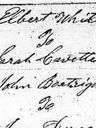 Elbert Whit
To
Sarah Cavette
John Boatrigh
To